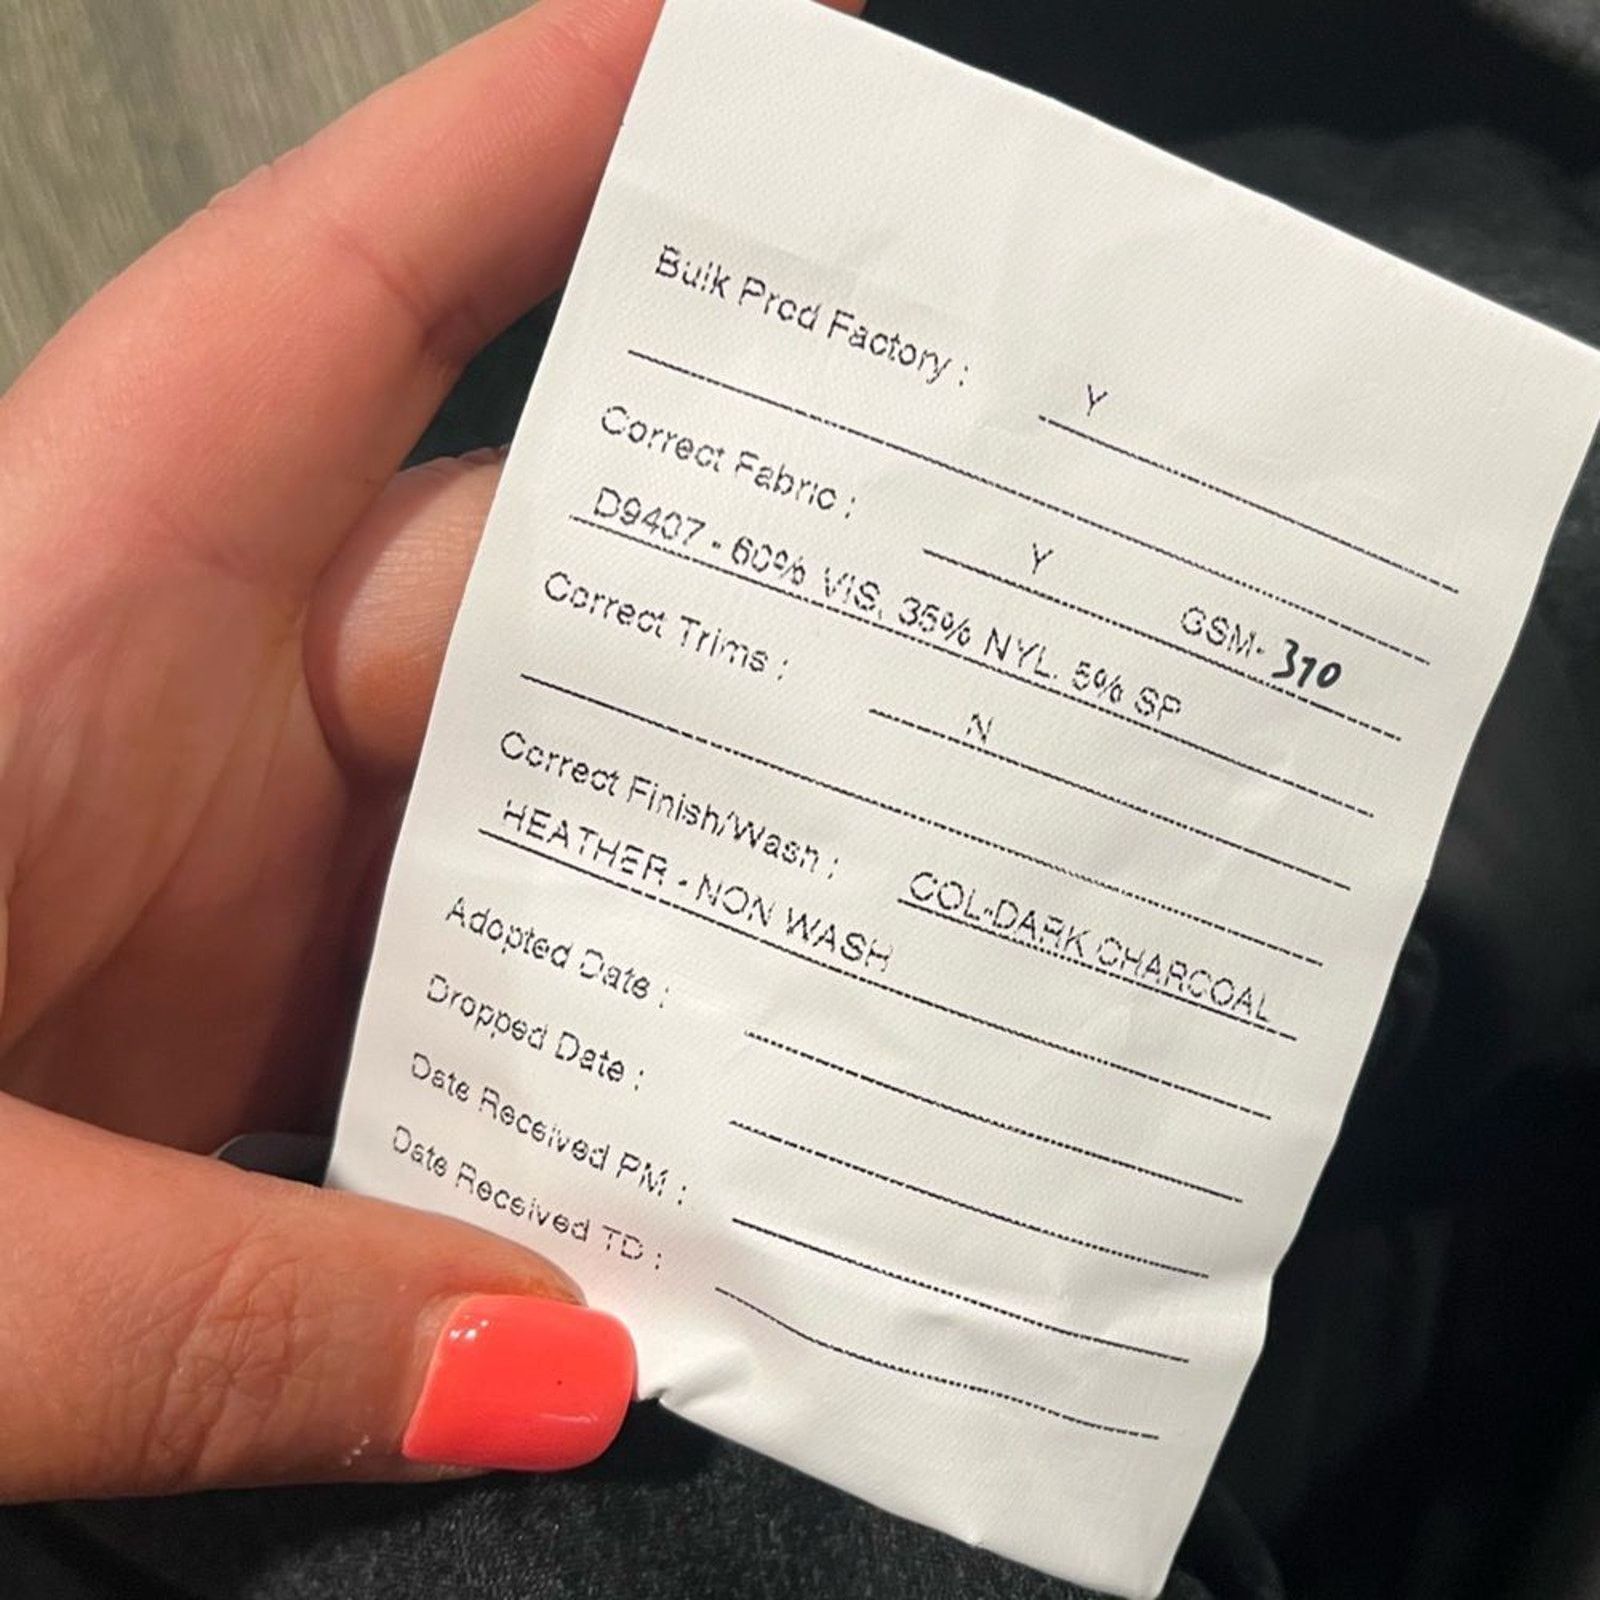 Bulk Prod Factory : Y
Correct Fabric : Y GSM- 310
D9407 - 60% VIS, 35% NYL. 5% SP
Correct Trims : N
Correct Finish/Wash : COL-DARK CHARCOAL
HEATHER - NON WASH
Adopted Date :
Dropped Date :
Date Received PM :
Date Received TD :